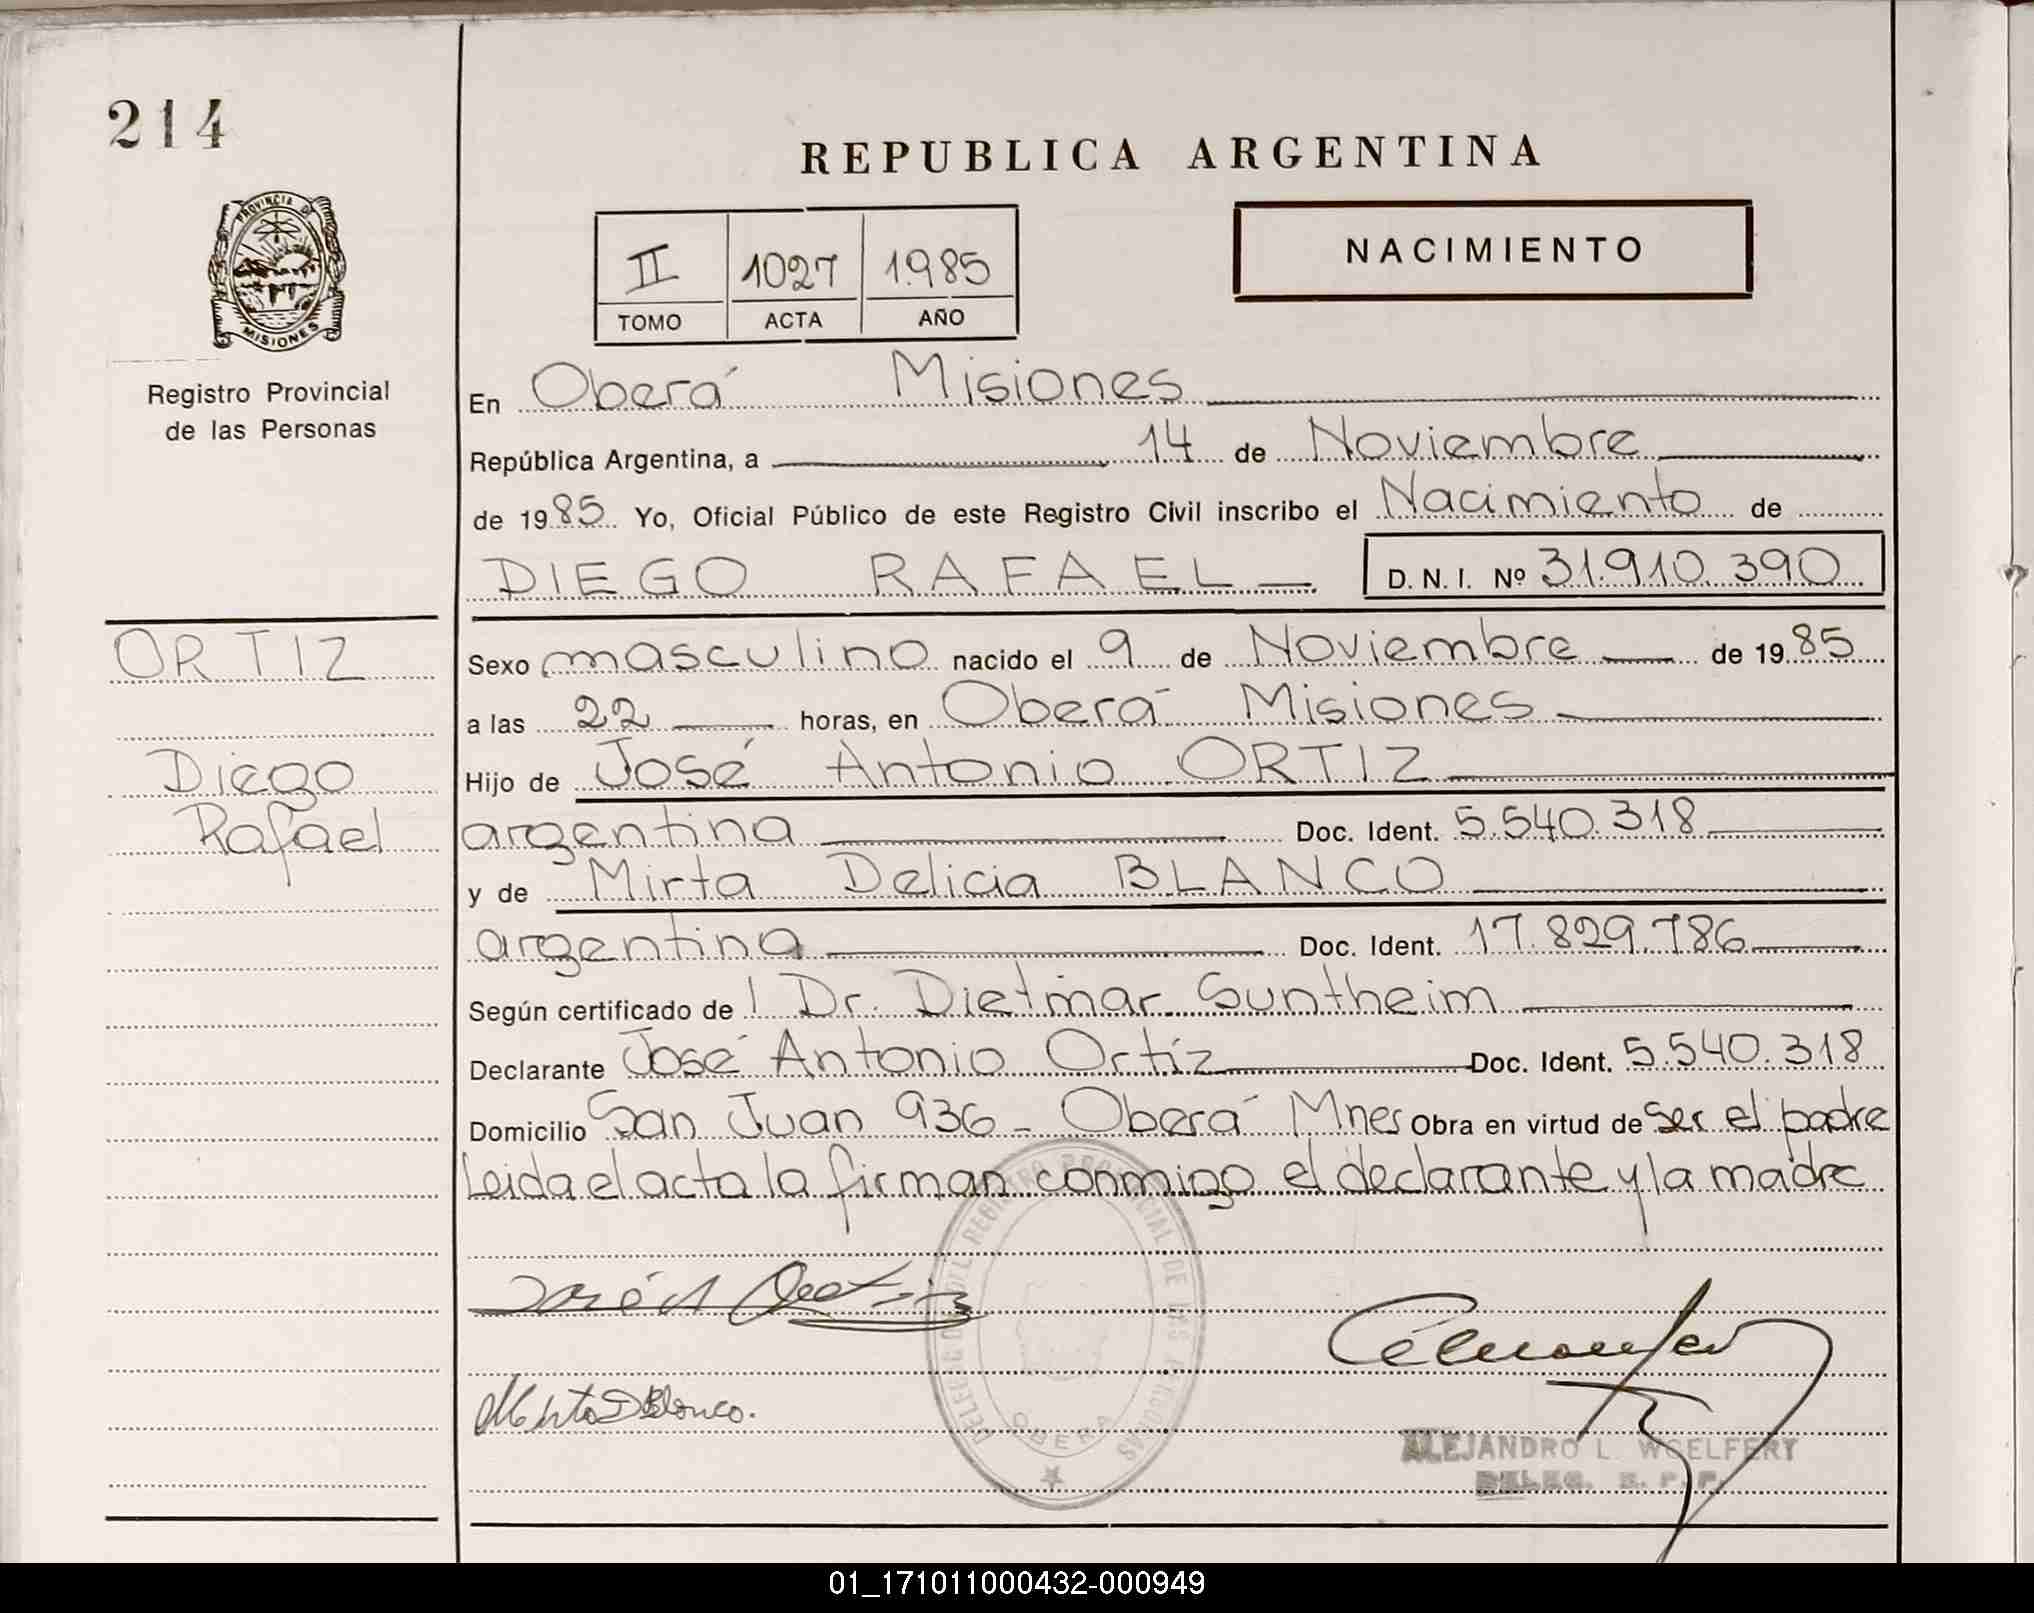 214
REPUBLICA ARGENTINA
PROVINCIA D MISIONES
II 1027 1985
TOMO ACTA AÑO
NACIMIENTO
Registro Provincial
de las Personas
En Oberá Misiones
República Argentina, a 14 de Noviembre
de 1985 Yo, Oficial Público de este Registro Civil inscribo el Nacimiento de
DIEGO RAFAEL D. N. I. Nº 31.910.390
ORTIZ
Diego
Rafael
Sexo masculino nacido el 9 de Noviembre de 1985
a las 22 horas, en Oberá Misiones
Hijo de José Antonio ORTIZ
argentina Doc. Ident. 5.540.318
y de Mirta Delicia BLANCO
argentina Doc. Ident. 17.829.786
Según certificado de l Dr. Dietmar Suntheim
Declarante José Antonio Ortíz Doc. Ident. 5.540.318
Domicilio San Juan 936 - Oberá Mnes Obra en virtud de ser el padre
Leida el acta la firman conmigo el declarante y la madre
José A Ortiz
Mirta D Blanco.
REGISTRO PROVINCIAL DE LAS PERSONAS
OBERA
ALEJANDRO L. WOELFERT
DELEG. R. P. P.
01_171011000432-000949